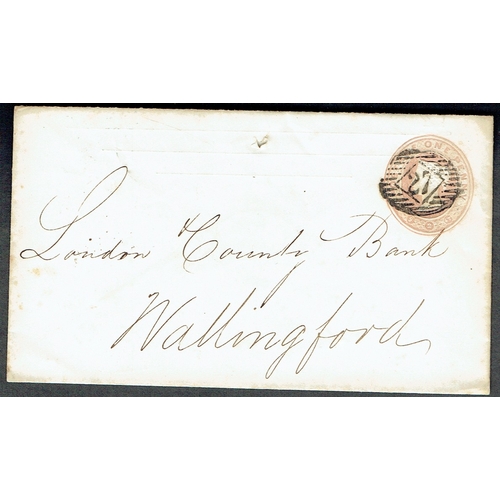 ONE PENNY
27
London County Bank
Wallingford